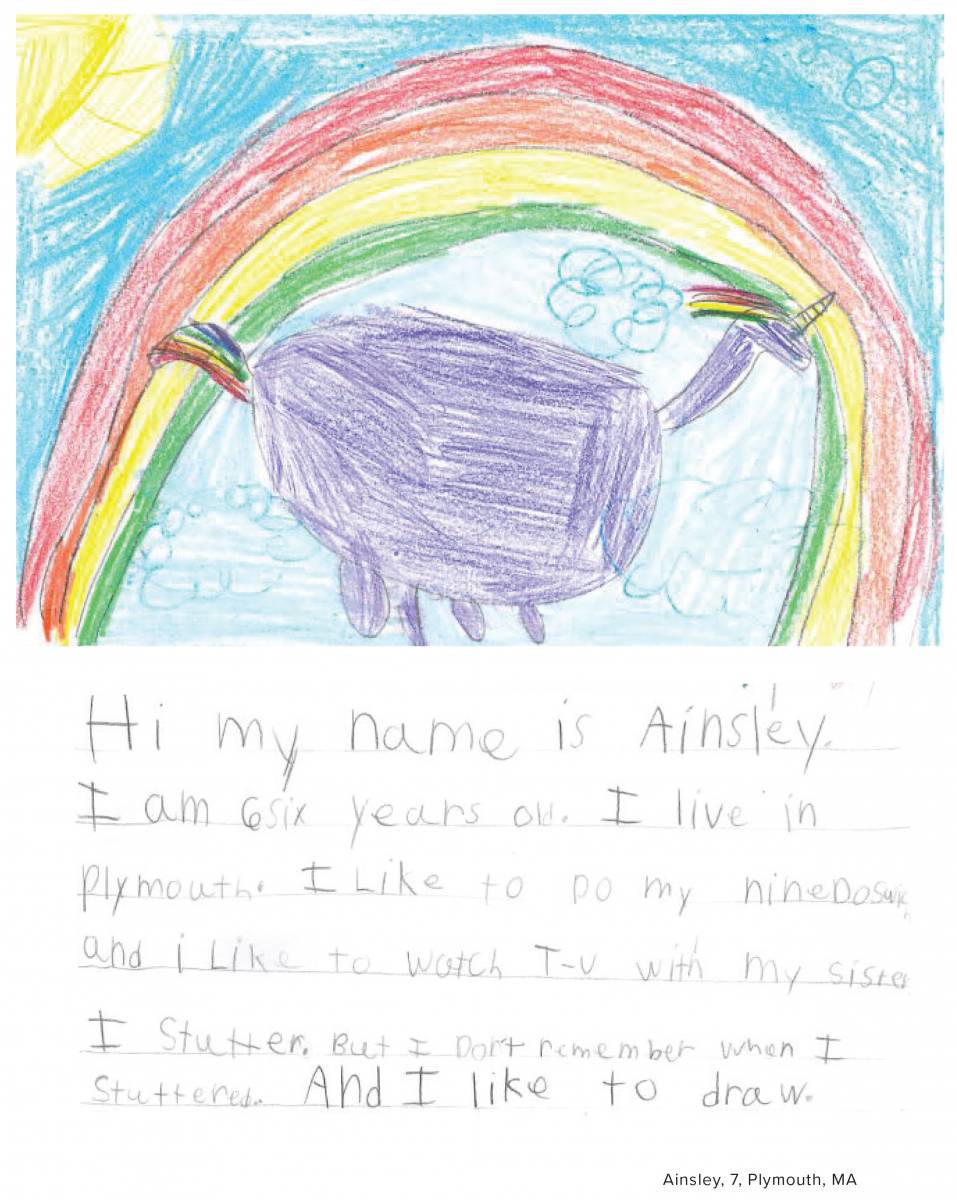 Hi my name is Ainsley.
I am 6six years old. I live in
plymouth. I Like to Do my
and i Like to watch T-V with my sister
I Stutter. But I Don't remember when I
Stuttered. And I like to draw.
Ainsley, 7, Plymouth, MA